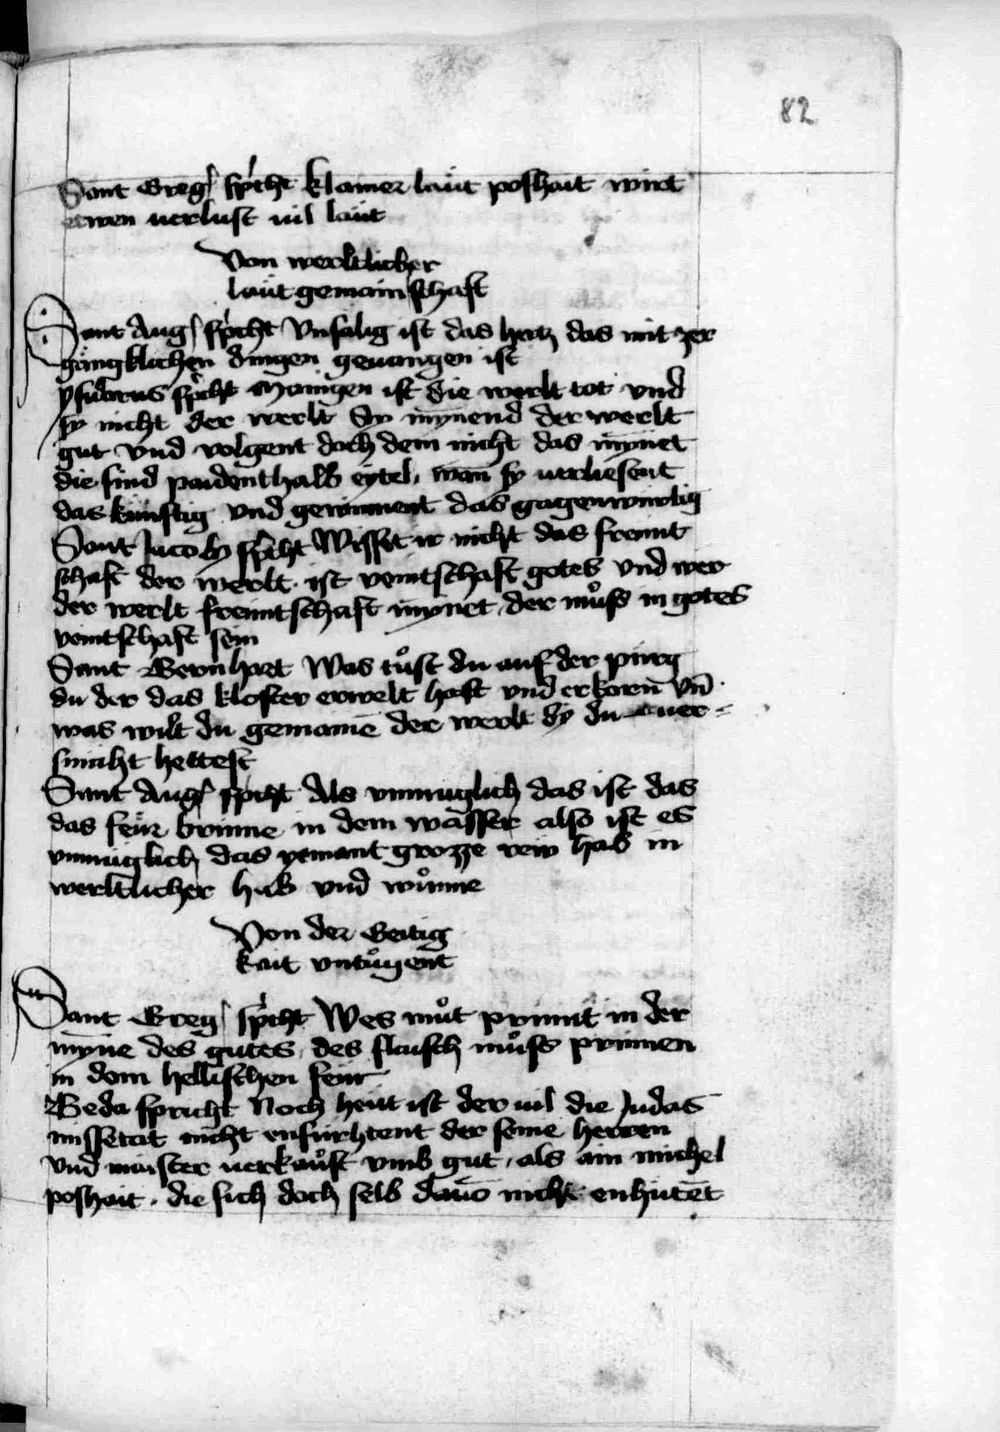 82
Sant Greg͛ spͥcht klainer laüt poshait wirt
etwen uerlust uil laüt
Von werltlicher
laüt gemainschaft
Sant Aug͛ spͥcht Vnsälig ist das hertz das mit zer
gängklichen dingen geuangen ist
ysidorus spͥcht Manigen ist die werlt tot vnd
sy nicht der werlt Sy mynend der werlt
gut vnd volgent doch dem nicht das mynet
die sind paidenthalb eytel, wan̄ sy uerliesent
das künftig vnd gewinnent das gagenwurtig
Sant Jacob spͥcht Wisset ir nicht das freunt
schaft der werlt ist veintschaft gotes vnd wer
der werlt freuntschaft mynet der mu̇ͦss in gotes
veintschaft sein
Sant Bernhart Was tuͦst du auf der purg
du der das kloster erwelt hast vnd erkorn̄ vn̄
was wilt du gemaine der werlt dy du uer-
smäht hettest
Sant Aug͛ spͥcht Als vnmüglich das ist das
das feür brinne in dem wasser also ist es
vnmüglich das yemant grozze rew hab in
werltlicher hub vnd wuͦnne
Von der Geitig
kait vntuͦgent
Sant Greg͛ spͥcht Wes muͦt prinnt in der
myne des gutes, des flaisch muͦss prinnen
in dem hellischen feür
Beda spricht Noch heüt ist der uil die Judas
missetat nicht enfürhtent der seine herren
vnd maister uerkauͦft vmb gut, als ain michel
poshait. die sich doch selb dauō nicht enhütēt